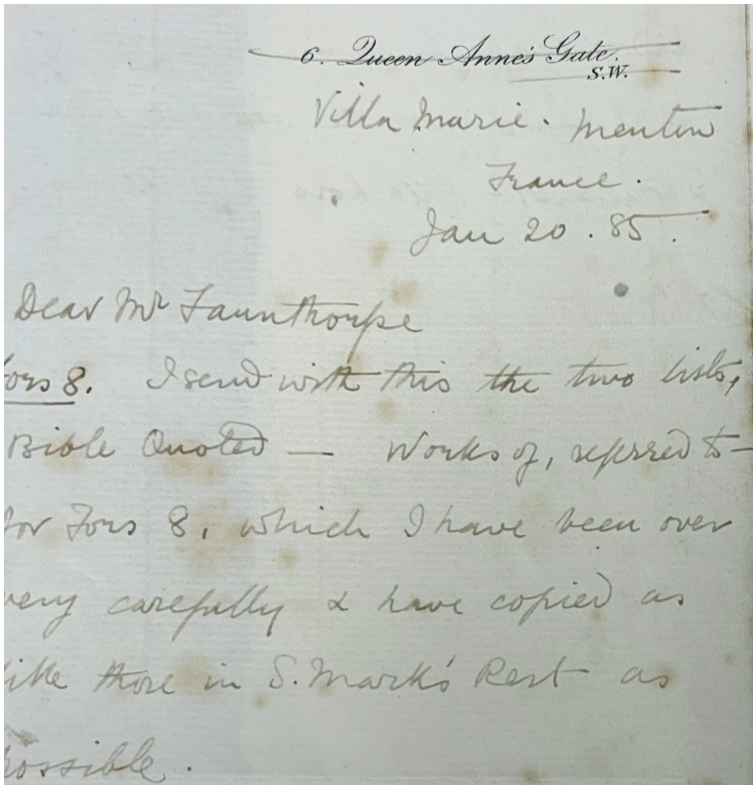 6. Queen Anne's Gate.
S.W.
Villa Marie. Menton
France.
Jan 20. 85.
Dear Mr Faunthorpe
Fors 8. I send with this the two lists,
Bible Quoted — Works of, referred to—
for Fors 8, which I have been over
very carefully & have copied as
like those in S. Mark's Rest as
possible.